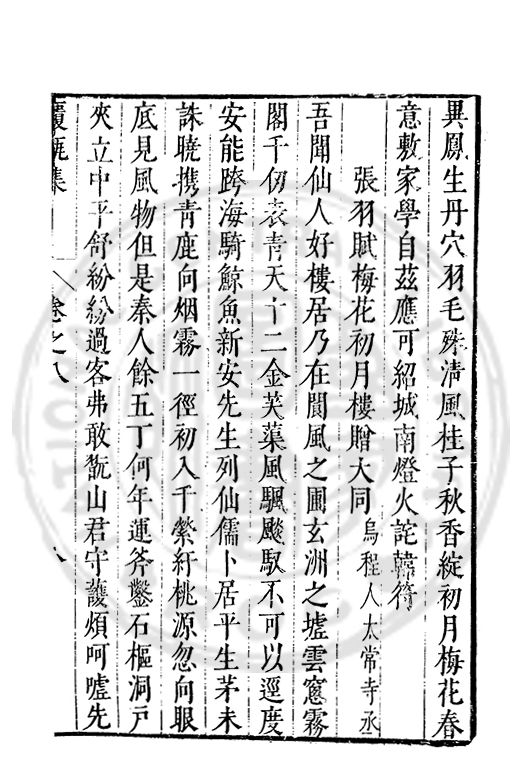 異鳳生丹穴羽毛殊清風桂子秋香綻初月梅花春
意敷家學自茲應可紹城南燈火詫韓符
張羽賦梅花初月樓贈大同烏程人太常寺丞
吾聞仙人好樓居乃在閬風之圃玄洲之墟雲窻霧
閣千仞表青天十二金芙蕖風颿飈馭不可以逕度
安能跨海騎鯨魚新安先生列仙儒卜居平生茅未
誅曉携青鹿向烟霧一徑初入千縈紆桃源忽向眼
底見風物但是秦人餘五丁何年運斧鑿石樞洞戸
夾立中平舒紛紛過客弗敢翫山君守護煩呵嘘先
覆瓿集 卷之八 八